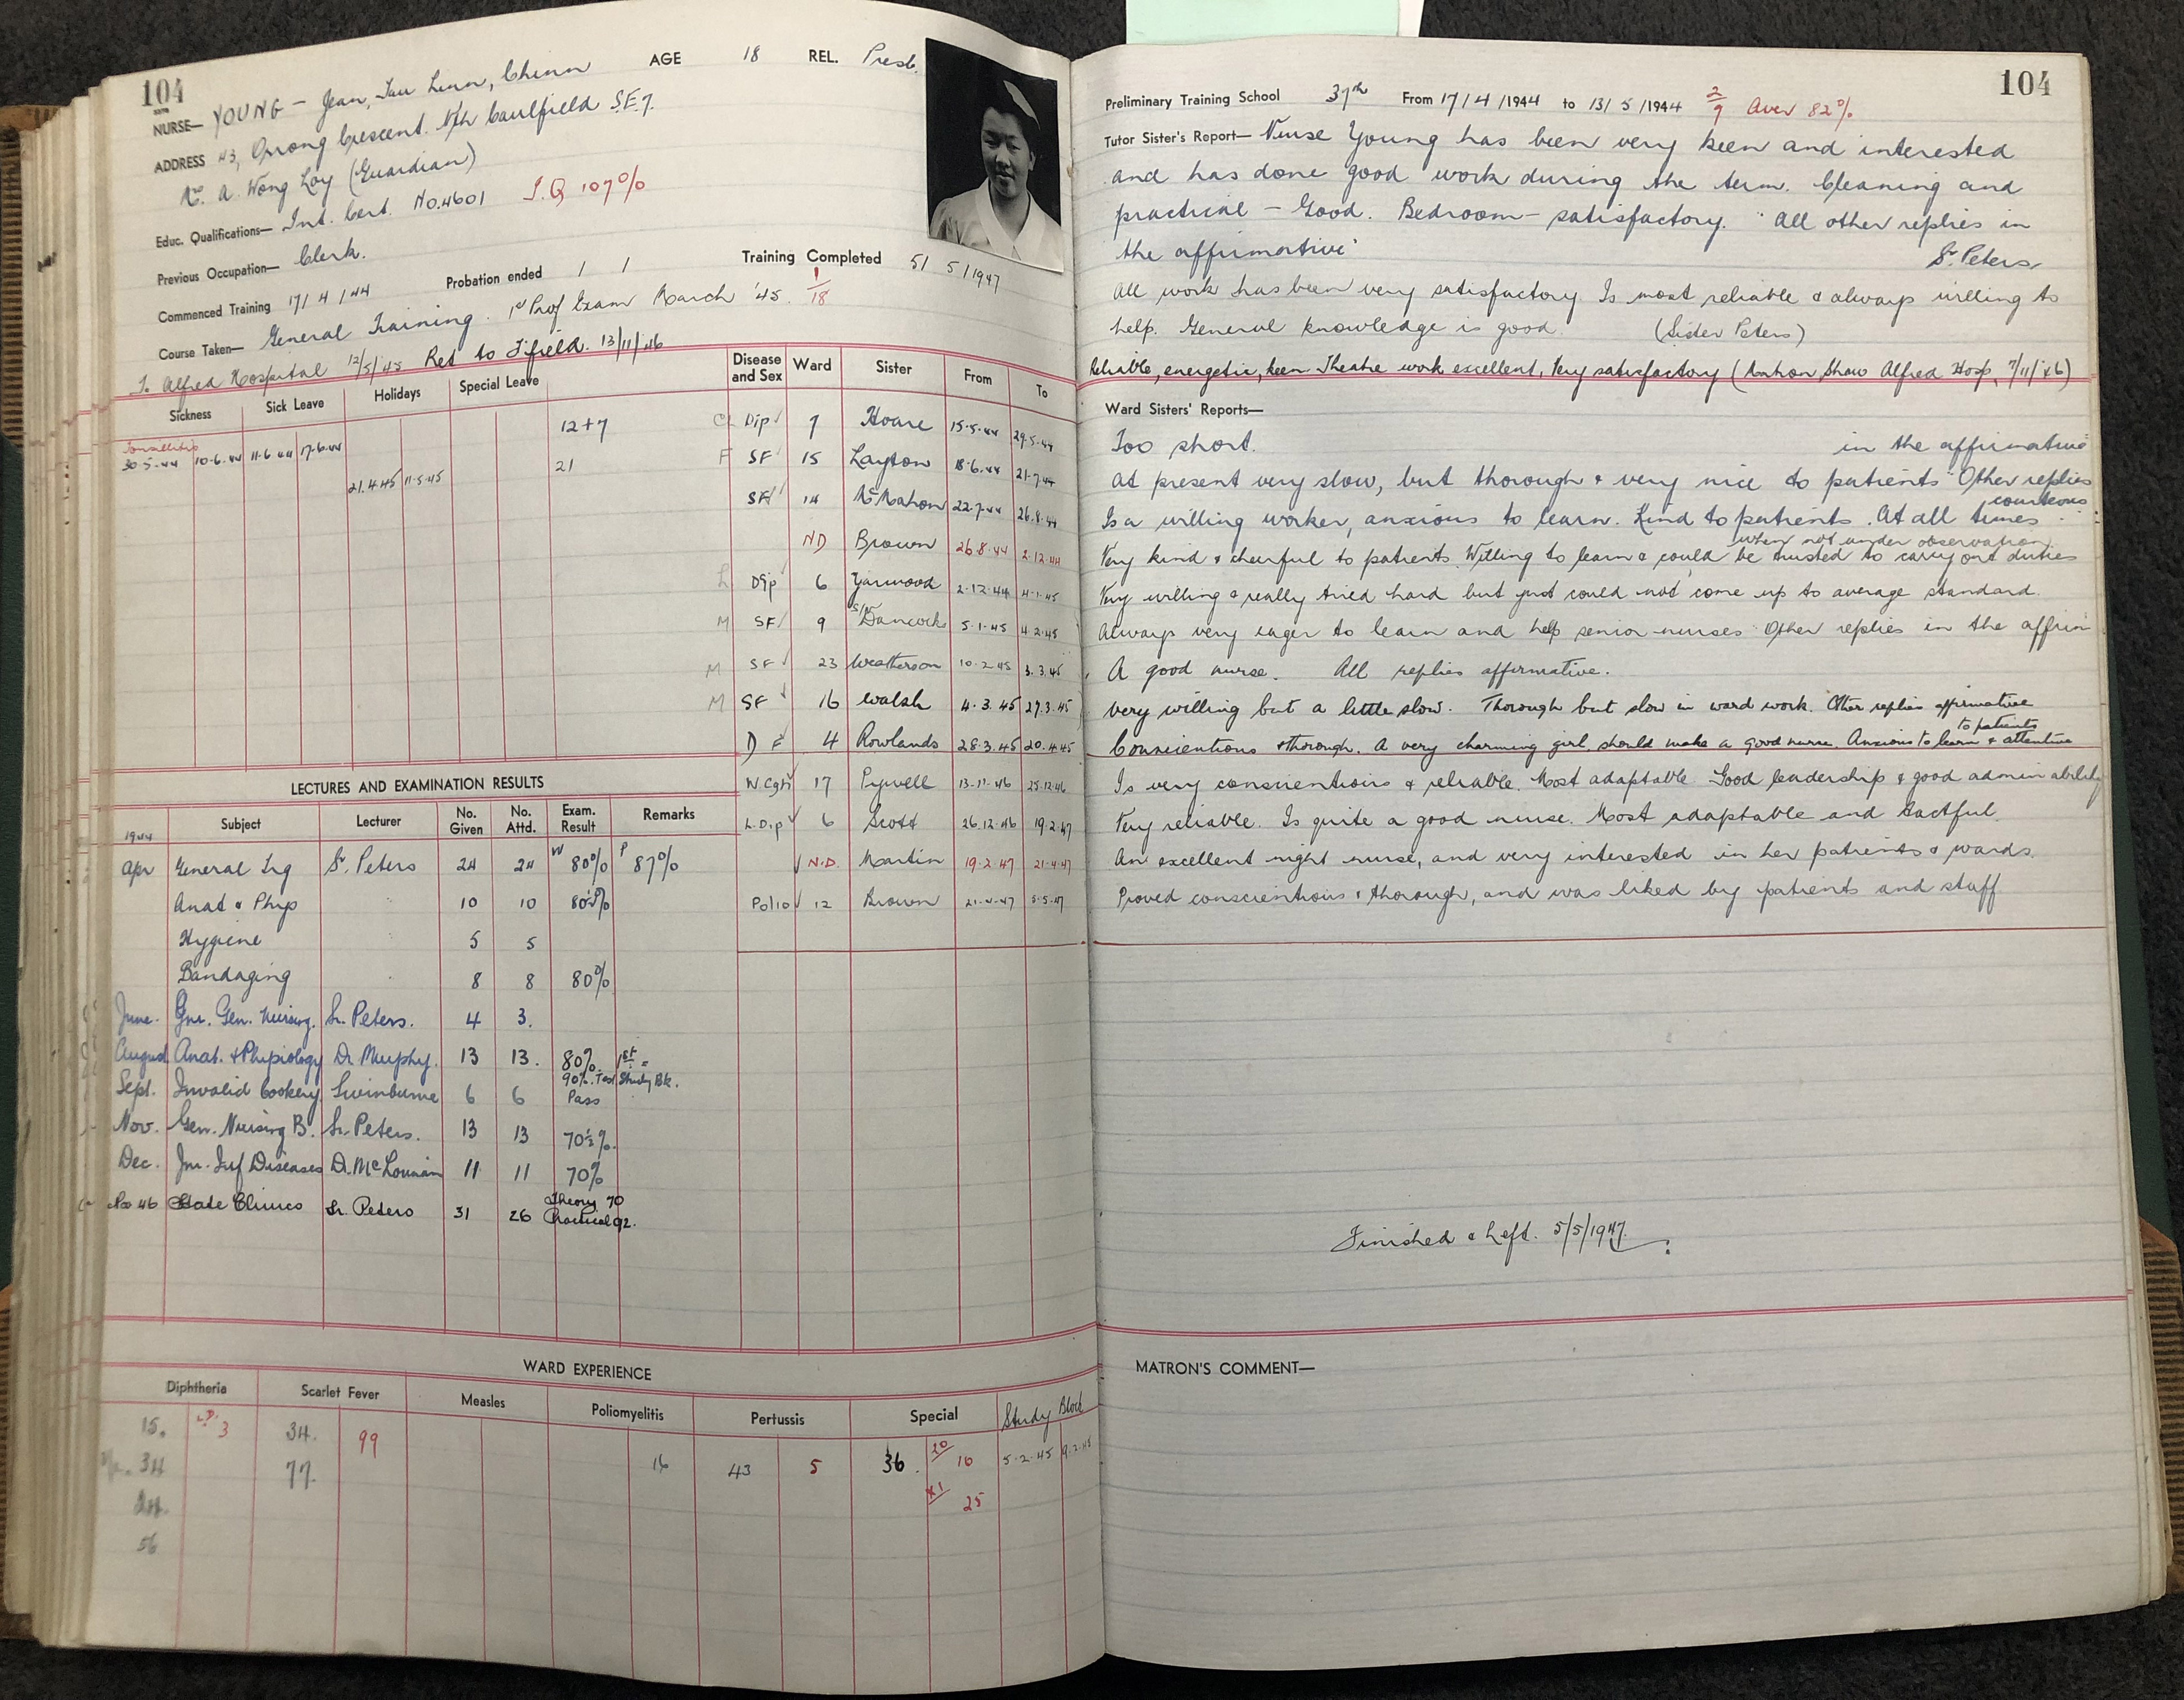 104
NURSE— YOUNG — Jean, Chinn AGE 18 REL. Presb.
ADDRESS 43, Orrong Crescent. Nth Caulfield S.E.7.
A. Wong Loy (Guardian)
Educ. Qualifications— Int. Cert. No.4601 I.Q 107%
Previous Occupation— Clerk.
Commenced Training 17/4/44 Probation ended / / Training Completed 5/5/1947
Course Taken— General Training. 1st Prof Exam March '45. 1/18
To Alfred Hospital 12/5/45 Ret to F'field. 13/11/46
Sickness Sick Leave Holidays Special Leave
Tonsillitis 12+7
30.5.44 10.6.44 11.6.44 17.6.44 21
21.4.45 11.5.45
Disease and Sex Ward Sister From To
Dip 7 Hoare 15.5.44 29.5.44
F SF 15 Layton 18.6.44 21.7.44
SF 14 McMahon 22.7.44 26.8.44
ND Brown 26.8.44 2.12.44
Dip 6 Yarwood 2.12.44 4.1.45
M SF 9 Hancock 5.1.45 4.2.45
M SF 23 Weatherson 10.2.45 3.3.45
M SF 16 Walsh 4.3.45 27.3.45
D F 4 Rowlands 28.3.45 20.4.45
W.Cgh 17 Pywell 13.11.46 25.12.46
L.Dip 6 Scott 26.12.46 19.2.47
N.D. Martin 19.2.47 21.4.47
Polio 12 Brown 21.4.47 5.5.47
LECTURES AND EXAMINATION RESULTS
1944 Subject Lecturer No. Given No. Attd. Exam. Result Remarks
Apr General Trg Sr. Peters 24 24 W 80% P 87%
Anat & Phys 10 10 80½%
Hygiene 5 5
Bandaging 8 8 80%
June. Jnr. Gen. Nursing. Sr. Peters. 4 3.
August Anat. & Physiology Dr. Murphy. 13 13. 80% 1st =
90%. Test Study Bk.
Sept. Invalid Cookery Swinburne 6 6 Pass
Nov. Gen. Nursing B. Sr. Peters. 13 13 70½%.
Dec. Jnr. Inf Diseases 11 11 70%
Nov 46 State Clinics Sr. Peters 31 26 Theory 70
Practical 92.
WARD EXPERIENCE
Diphtheria Scarlet Fever Measles Poliomyelitis Pertussis Special Study Block
15. 3 34. 99
34 77. 16 43 5 36. 20 16 5.2.45 9.2.45
x1 25
56
104
Preliminary Training School 37th From 17/4/1944 to 13/5/1944 2/9 Aver 82%
Tutor Sister's Report— Nurse Young has been very keen and interested
and has done good work during the term. Cleaning and
practical — Good. Bedroom — satisfactory. "All other replies in
the affirmative"
Sr. Peters
All work has been very satisfactory. Is most reliable & always willing to
help. General knowledge is good. (Sister Peters)
Reliable, energetic, keen Theatre work excellent, Very satisfactory (Matron Shaw Alfred Hosp, 7/11/46)
Ward Sisters' Reports—
Too short. in the affirmative
At present very slow, but thorough & very nice to patients "Other replies
Is a willing worker, anxious to learn. Kind to patients. At all times courteous
when not under observation
Very kind & cheerful to patients. Willing to learn & could be trusted to carry out duties
Very willing & really tried hard but just could not come up to average standard.
Always very eager to learn and help senior nurses "Other replies in the affirm
A good nurse. All replies affirmative.
Very willing but a little slow. Thorough but slow in ward work. Other replies affirmative
to patients
Conscientious & thorough. A very charming girl, should make a good nurse. Anxious to learn & attentive
Is very conscientious & reliable. Most adaptable. Good leadership & good admin ability
Very reliable. Is quite a good nurse. Most adaptable and tactful.
An excellent night nurse, and very interested in her patients & wards.
Proved conscientious & thorough, and was liked by patients and staff
Finished & left. 5/5/1947.
MATRON'S COMMENT—